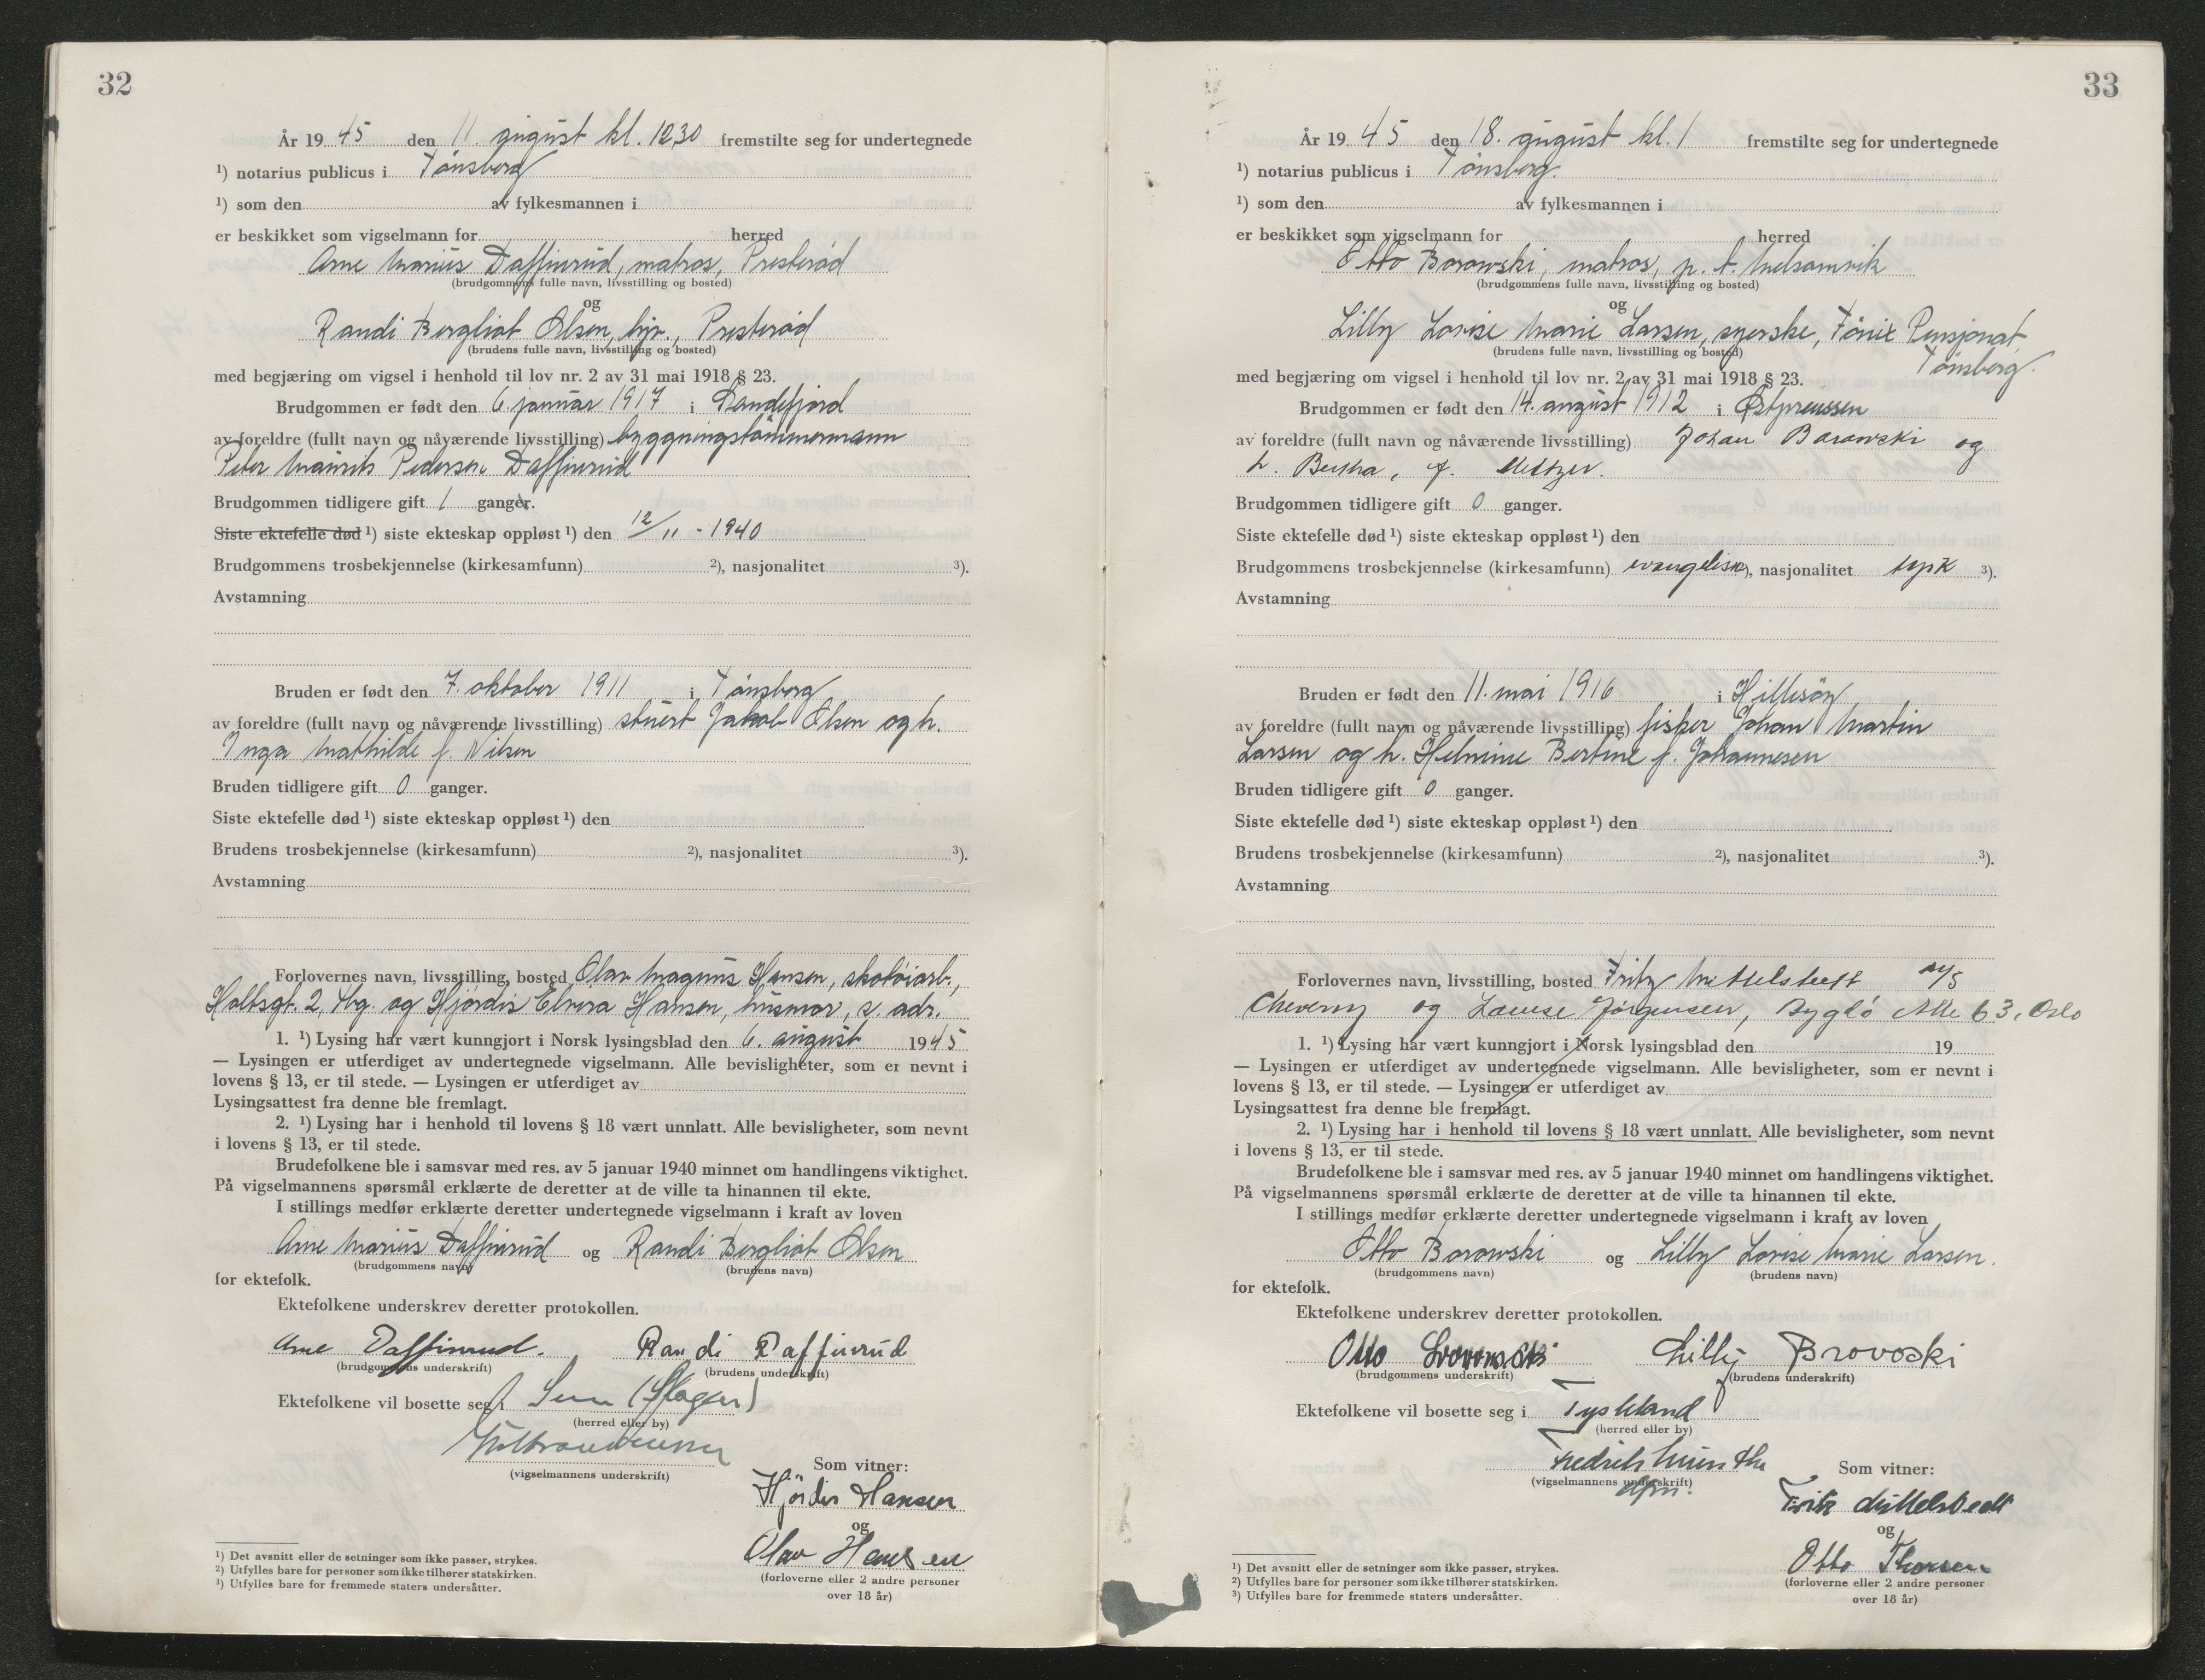 32
År 19 45 den 11. august kl. 12.30 fremstilte seg for undertegnede
¹) notarius publicus i Tønsberg
¹) som den av fylkesmannen i
er beskikket som vigselmann for herred
Arne Marius Daffinrud, matros, Presterød
(brudgommens fulle navn, livsstilling og bosted)
og
Randi Bergliot Olsen, hjv., Presterød
(brudens fulle navn, livsstilling og bosted)
med begjæring om vigsel i henhold til lov nr. 2 av 31 mai 1918 § 23.
Brudgommen er født den 6. januar 1917 i Sandefjord
av foreldre (fullt navn og nåværende livsstilling) byggningstømmermann
Peter Maurits Pedersen Daffinrud
Brudgommen tidligere gift 1 ganger.
Siste ektefelle død ¹) siste ekteskap oppløst ¹) den 12/11 - 1940
Brudgommens trosbekjennelse (kirkesamfunn) ²), nasjonalitet ³).
Avstamning
Bruden er født den 7. oktober 1911 i Tønsberg
av foreldre (fullt navn og nåværende livsstilling) stuert Jakob Olsen og h.
Inga Mathilde f. Nilsen
Bruden tidligere gift 0 ganger.
Siste ektefelle død ¹) siste ekteskap oppløst ¹) den
Brudens trosbekjennelse (kirkesamfunn) ²), nasjonalitet ³).
Avstamning
Forlovernes navn, livsstilling, bosted Olav Magnus Hansen, skotøiarb.,
Holtsgt. 2, Tbg. og Hjørdis Elvira Hansen, husmor, s. adr.
1. ¹) Lysing har vært kunngjort i Norsk lysingsblad den 6. august 1945
— Lysingen er utferdiget av undertegnede vigselmann. Alle bevisligheter, som er nevnt i
lovens § 13, er til stede. — Lysingen er utferdiget av
Lysingsattest fra denne ble fremlagt.
2. ¹) Lysing har i henhold til lovens § 18 vært unnlatt. Alle bevisligheter, som nevnt
i lovens § 13, er til stede.
Brudefolkene ble i samsvar med res. av 5 januar 1940 minnet om handlingens viktighet.
På vigselmannens spørsmål erklærte de deretter at de ville ta hinannen til ekte.
I stillings medfør erklærte deretter undertegnede vigselmann i kraft av loven
Arne Marius Daffinrud og Randi Bergliot Olsen
(brudgommens navn) (brudens navn)
for ektefolk.
Ektefolkene underskrev deretter protokollen.
Arne Daffinrud. Randi Daffinrud
(brudgommens underskrift) (brudens underskrift)
Ektefolkene vil bosette seg i Sem (Slagen)
(herred eller by)
(vigselmannens underskrift)
Som vitner:
Hjørdis Hansen
og
Olav Hansen
(forloverne eller 2 andre personer
over 18 år)
¹) Det avsnitt eller de setninger som ikke passer, strykes.
²) Utfylles bare for personer som ikke tilhører statskirken.
³) Utfylles bare for fremmede staters undersåtter.
33
År 19 45 den 18. august kl. 1 fremstilte seg for undertegnede
¹) notarius publicus i Tønsberg.
¹) som den av fylkesmannen i
er beskikket som vigselmann for herred
Otto Borowski, matros, p. t. Melsomvik
(brudgommens fulle navn, livsstilling og bosted)
og
Lilly Lovise Marie Larsen, syerske, Fønix Pensjonat
Tønsberg.
(brudens fulle navn, livsstilling og bosted)
med begjæring om vigsel i henhold til lov nr. 2 av 31 mai 1918 § 23.
Brudgommen er født den 14. august 1912 i Østpreussen
av foreldre (fullt navn og nåværende livsstilling) Johan Borowski og
h. Bertha, f.
Brudgommen tidligere gift 0 ganger.
Siste ektefelle død ¹) siste ekteskap oppløst ¹) den
Brudgommens trosbekjennelse (kirkesamfunn) evangelisk ²), nasjonalitet tysk ³).
Avstamning
Bruden er født den 11. mai 1916 i Hillesøy
av foreldre (fullt navn og nåværende livsstilling) fisker Johan Martin
Larsen og h. Helmine Bertine f. Johannesen
Bruden tidligere gift 0 ganger.
Siste ektefelle død ¹) siste ekteskap oppløst ¹) den
Brudens trosbekjennelse (kirkesamfunn) ²), nasjonalitet ³).
Avstamning
Forlovernes navn, livsstilling, bosted Fritz Mittelstedt M/S
Cheverny og Lovise Jørgensen, Bygdø Alle 63, Oslo
1. ¹) Lysing har vært kunngjort i Norsk lysingsblad den 19
— Lysingen er utferdiget av undertegnede vigselmann. Alle bevisligheter, som er nevnt i
lovens § 13, er til stede. — Lysingen er utferdiget av
Lysingsattest fra denne ble fremlagt.
2. ¹) Lysing har i henhold til lovens § 18 vært unnlatt. Alle bevisligheter, som nevnt
i lovens § 13, er til stede.
Brudefolkene ble i samsvar med res. av 5 januar 1940 minnet om handlingens viktighet.
På vigselmannens spørsmål erklærte de deretter at de ville ta hinannen til ekte.
I stillings medfør erklærte deretter undertegnede vigselmann i kraft av loven
Otto Borowski og Lilly Lovise Marie Larsen.
(brudgommens navn) (brudens navn)
for ektefolk.
Ektefolkene underskrev deretter protokollen.
Otto Lilly Brovoski
(brudgommens underskrift) (brudens underskrift)
Ektefolkene vil bosette seg i Tyskland
(herred eller by)
Fredrik Munthe
(vigselmannens underskrift)
Som vitner:
Fritz Mittelstedt
og
Otto Thorsen
(forloverne eller 2 andre personer
over 18 år)
¹) Det avsnitt eller de setninger som ikke passer, strykes.
²) Utfylles bare for personer som ikke tilhører statskirken.
³) Utfylles bare for fremmede staters undersåtter.